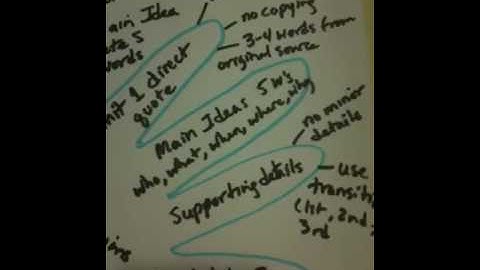 ain Idea
words
no copying
3-4 words from
original source
1 direct
quote
Main Ideas 5 W's
who, what, when, where, why
no minor
details
Supporting details
use
transiti
(1st, 2nd,
3rd